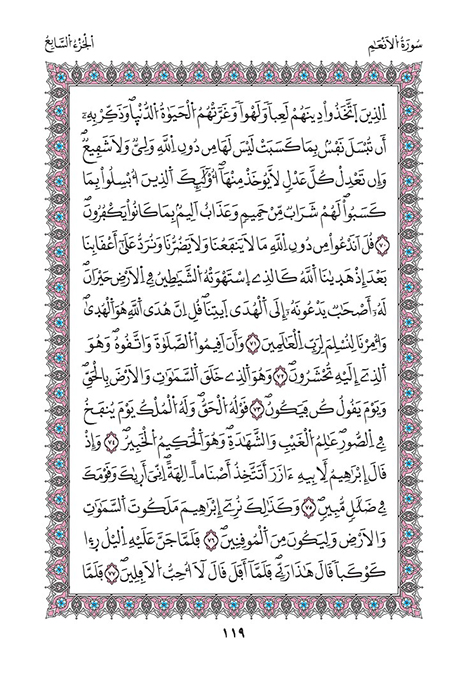 سُورَةُ الْأَنْعَامِ
الْجُزْءُ السَّابِعُ
اَلذِينَ اَتَّخَذُواْ دِينَهُمْ لَعِباً وَلَهْواً وَغَرَّتْهُمُ الْحَيَوٰةُ الدُّنْيَا وَذَكِّرْ بِهِۦ
أَن تُبْسَلَ نَفْسُۢ بِمَا كَسَبَتْ لَيْسَ لَهَا مِن دُونِ اِللَّهِ وَلِيٌّ وَلَا شَفِيعٌ
وَإِن تَعْدِلْ كُلَّ عَدْلٍ لَّا يُوخَذْ مِنْهَا أُوْلَٰٓئِكَ اَلذِينَ أُبْسِلُواْ بِمَا
كَسَبُواْ لَهُمْ شَرَابٌ مِّنْ حَمِيمٍ وَعَذَابٌ اَلِيمُۢ بِمَا كَانُواْ يَكْفُرُونَ
٧٠ قُلَ اَنَدْعُواْ مِن دُونِ اِللَّهِ مَا لَا يَنفَعُنَا وَلَا يَضُرُّنَا وَنُرَدُّ عَلَىٰٓ أَعْقَابِنَا
بَعْدَ إِذْ هَدَيٰنَا اَللَّهُ كَالذِے اِسْتَهْوَتْهُ الشَّيَٰطِينُ فِے اِلْأَرْضِ حَيْرَانَ
لَهُۥٓ أَصْحَٰبٌ يَدْعُونَهُۥٓ إِلَى اَلْهُدَى اَيتِنَا قُلِ اِنَّ هُدَى اَللَّهِ هُوَ اَلْهُدَىٰ
وَأُمِرْنَا لِنُسْلِمَ لِرَبِّ اِلْعَٰلَمِينَ ٧١ وَأَنَ اَقِيمُواْ الصَّلَوٰةَ وَاتَّقُوهُ وَهُوَ
اَلذِے إِلَيْهِ تُحْشَرُونَ ٧٢ وَهُوَ اَلذِے خَلَقَ اَلسَّمَٰوَٰتِ وَالْأَرْضَ بِالْحَقِّ
وَيَوْمَ يَقُولُ كُن فَيَكُونُ ٧٣ قَوْلُهُ الْحَقُّ وَلَهُ الْمُلْكُ يَوْمَ يُنفَخُ
فِے اِلصُّورِ عَٰلِمُ اُلْغَيْبِ وَالشَّهَٰدَةِ وَهُوَ اَلْحَكِيمُ اُلْخَبِيرُ ٧٤ وَإِذْ
قَالَ إِبْرَٰهِيمُ لِأَبِيهِ ءَازَرَ أَتَتَّخِذُ أَصْنَاماً اٰلِهَةً اِنِّيَ أَرَيٰكَ وَقَوْمَكَ
فِے ضَلَٰلٍ مُّبِينٍ ٧٥ وَكَذَٰلِكَ نُرِےٓ إِبْرَٰهِيمَ مَلَكُوتَ اَلسَّمَٰوَٰتِ
وَالْأَرْضِ وَلِيَكُونَ مِنَ اَلْمُوقِنِينَ ٧٦ فَلَمَّا جَنَّ عَلَيْهِ اِليْلُ رَءٰا
كَوْكَباً قَالَ هَٰذَا رَبِّے فَلَمَّآ أَفَلَ قَالَ لَآ أُحِبُّ اُلْأٓفِلِينَ ٧٧ فَلَمَّا
١١٩